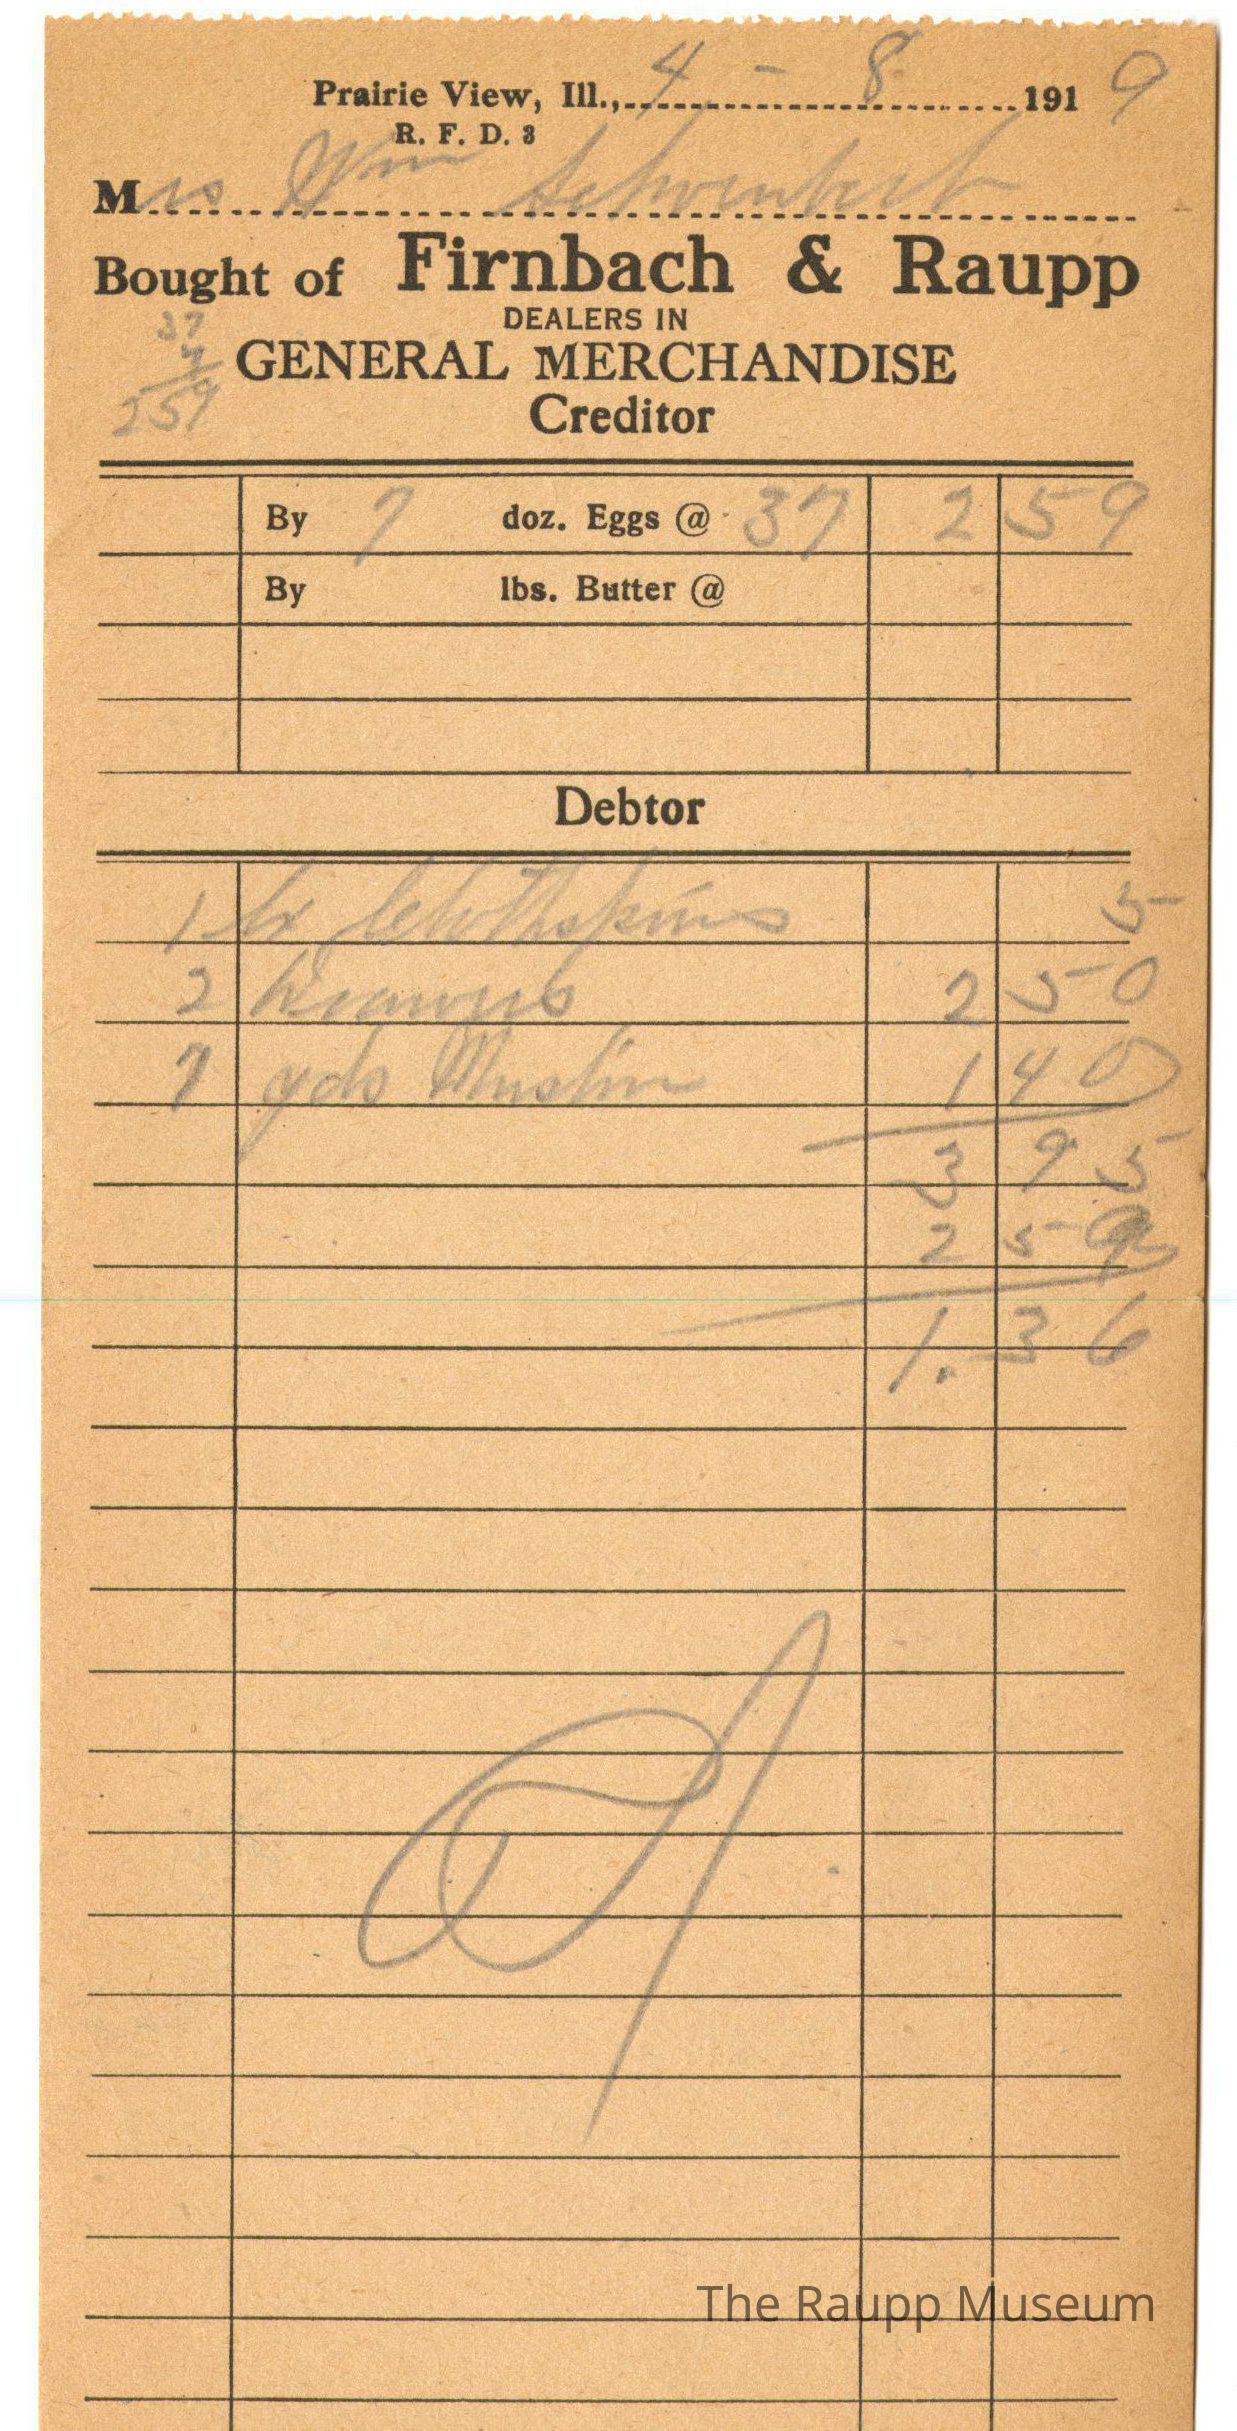 Prairie View, Ill., 4 - 8 1919
R. F. D. 3
Mrs Wm
Bought of Firnbach & Raupp
DEALERS IN
GENERAL MERCHANDISE
Creditor
37
7
259
By 7 doz. Eggs @ 37 2 59
By lbs. Butter @
Debtor
1 Clothspins 5
2 2 50
7 yds Muslin 1 40
3 95
2 59
1.36
The Raupp Museum